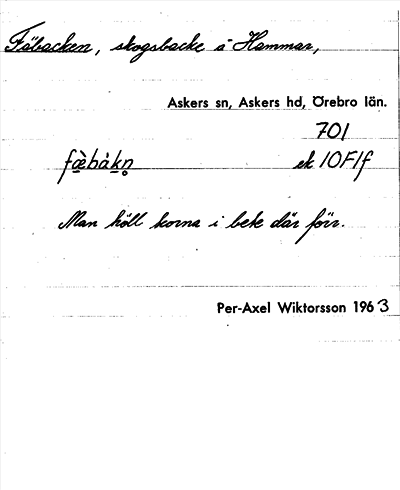 Fäbacken, skogsbacke å Hammar,
Askers sn, Askers hd, Örebro län.
701
fæ̀bàkn̥ ek 10F1f
Man höll korna i bete där förr.
Per-Axel Wiktorsson 1963